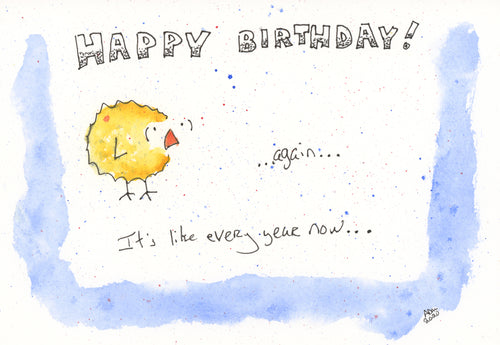 HAPPY BIRTHDAY!
...again...
It's like every year now...
2020